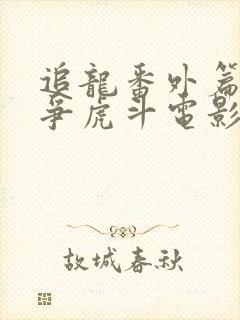 追龍番外篇
爭虎斗電影
故城春秋